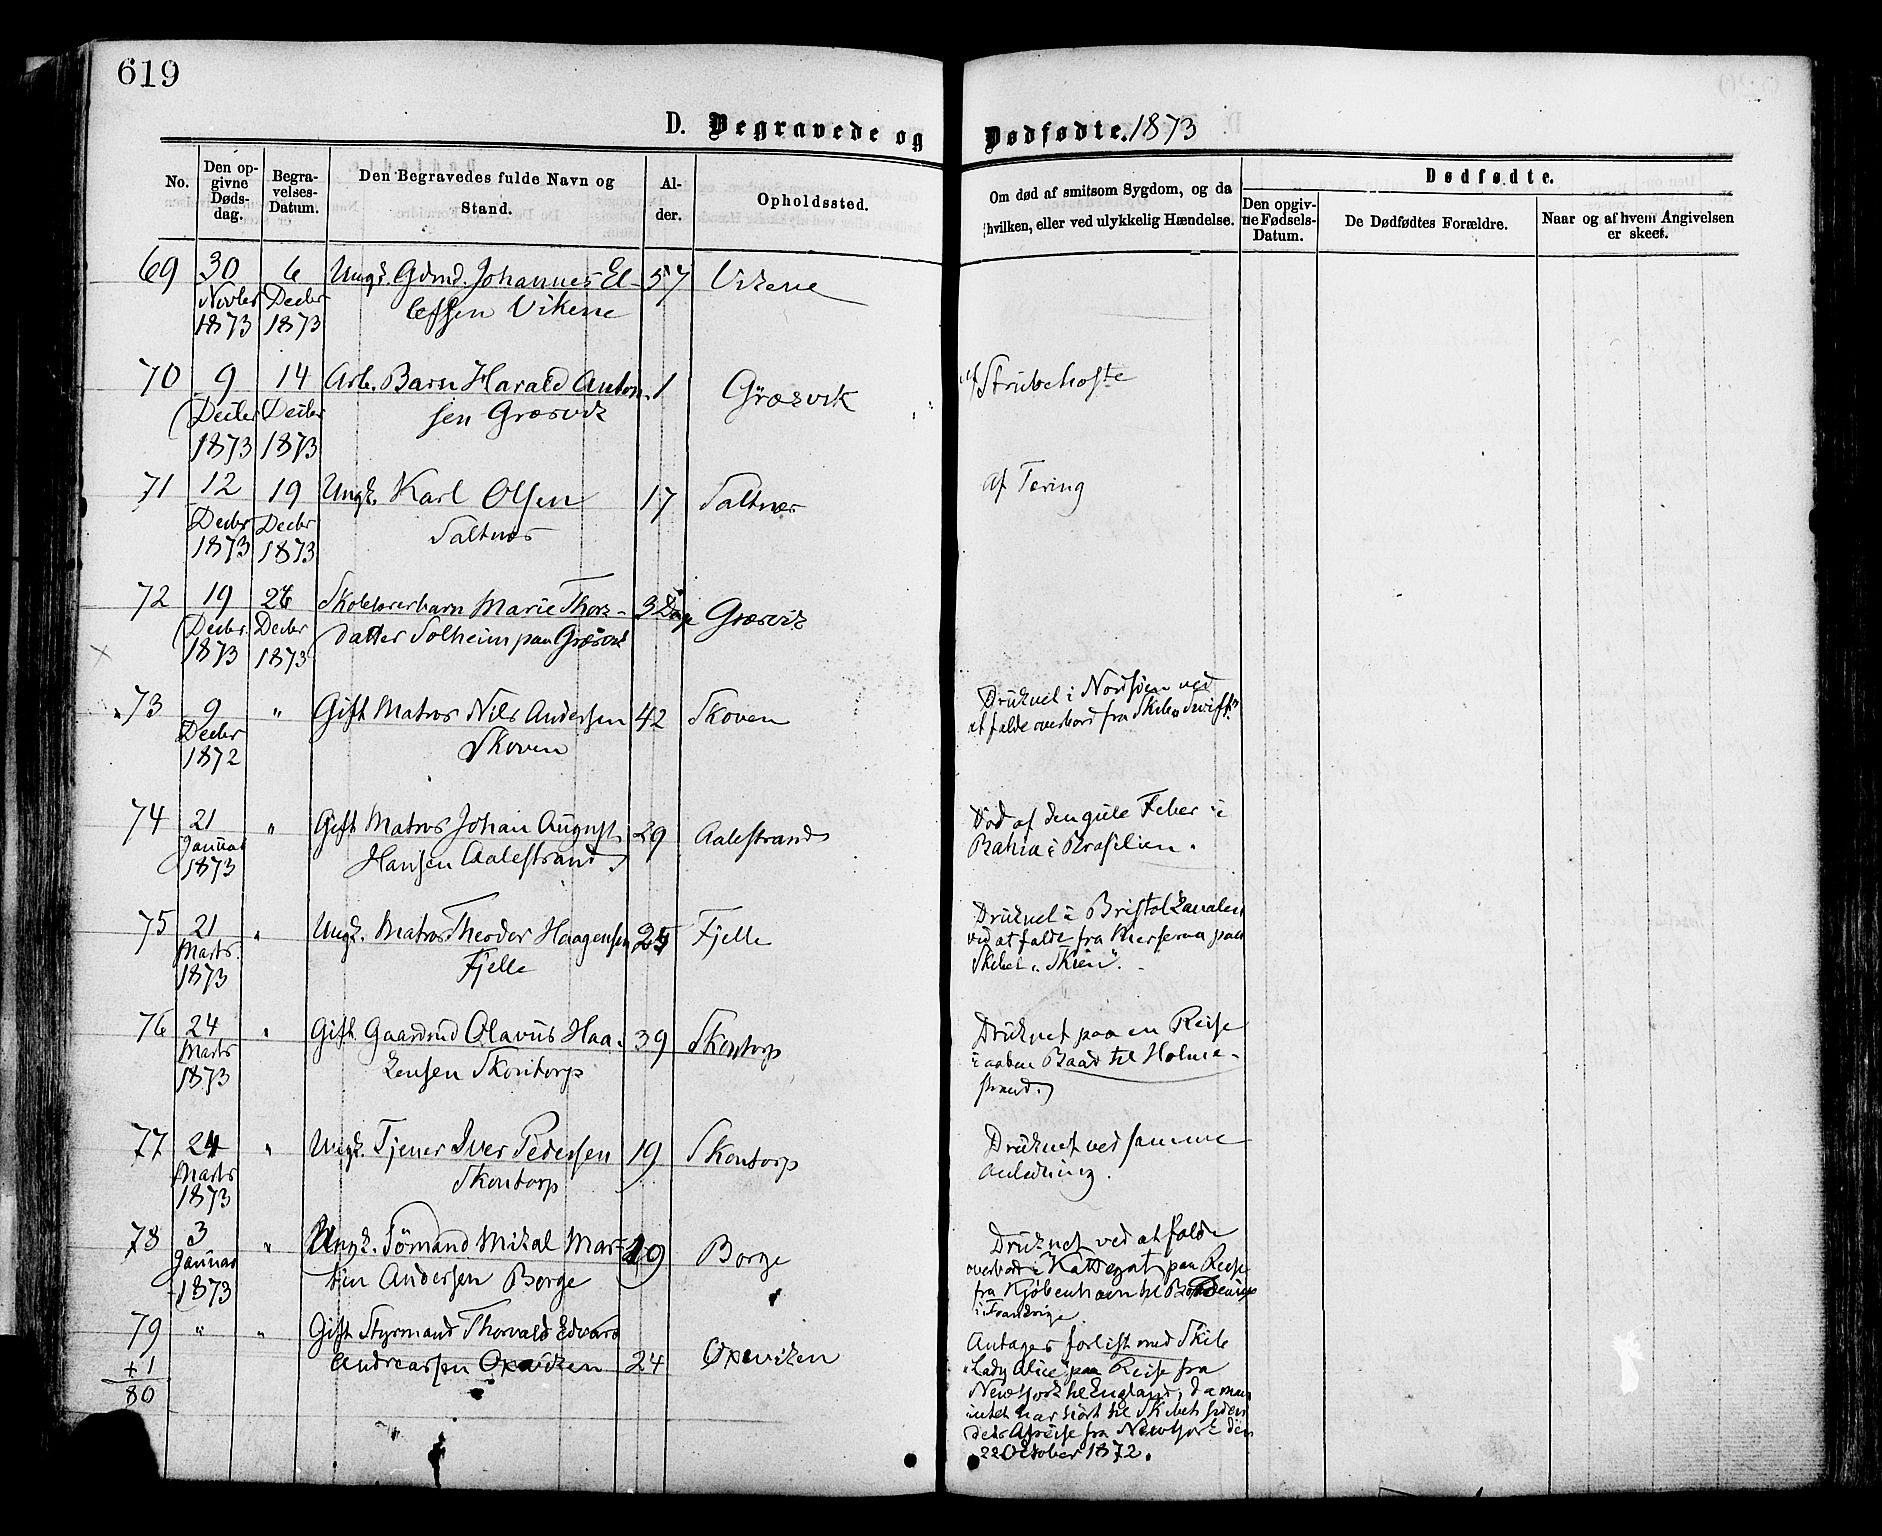 619
D. Begravede og Dødfødte. 1873
No.
Den opgivne Dødsdag.
Begravelses-Datum.
Den Begravedes fulde Navn og Stand.
Alder.
Opholdssted.
Om død af smitsom Sygdom, og da hvilken, eller ved ulykkelig Hændelse.
Dødfødte.
Den opgivne Fødsels-Datum.
De Dødfødtes Forældre.
Naar og af hvem Angivelsen er skeet.
69 30 6 Ungk. Gdmd. Johannes El- 57 Vikene
Novbr Decbr lefsen Vikene
1873 1873
70 9 14 Arb. Barn Harald Anton- 1 Græsvik af Strubehoste
Decbr Decbr sen Græsvik
1873 1873
71 12 19 Ungk. Karl Olsen 17 Saltnes af Tering
Decbr Decbr Saltnes
1873 1873
72 19 26 Skolelærerbarn Marie Thors- 3 Dage Græsvik
Decbr Decbr datter Solheim paa Græsvik
1873 1873
73 9 " Gift Matros Nils Andersen 42 Skoven Druknet i Nordsøen ved
Decbr Skoven at falde overbord fra Skibet Swift"
1872
74 21 " Gift Matros Johan August 29 Aalestrand Død af den gule Feber i
Januar Hansen Aalestrand Bahia i Brasilien.
1873
75 21 " Ungk. Matros Theodor Haagensen 25 Fjelle Druknet i Bristolkanalen
Marts Fjelle ved at falde fra Merseraa paa
1873 Skibet „Skien".
76 24 " Gift Gaardmd Olavus Haa- 39 Skontorp Druknet paa en Reise
Marts kensen Skontorp i aaben Baad til Holme-
1873 strand.
77 24 " Ungk. Tjener Iver Pedersen 19 Skontorp Druknet ved samme
Marts Skontorp Anledning.
1873
78 3 " Ungk. Sømand Mikal Mar- 19 Borge Druknet ved at falde
Januar tin Andersen Borge overbord i Kattegat paa Reise
1873 fra Kjøbenhavn til
i Frankrige
79 " " Gift Styrmand Thorvald Edvard Antages forlist med Skib
+1 Andreassen Oxeviken 24 Oxeviken „Lady Alice" paa Reise fra
80 Newyork til England, da man
intet har hørt til Skibet siden
dets Afreise fra Newyork den
22 Oktober 1872.